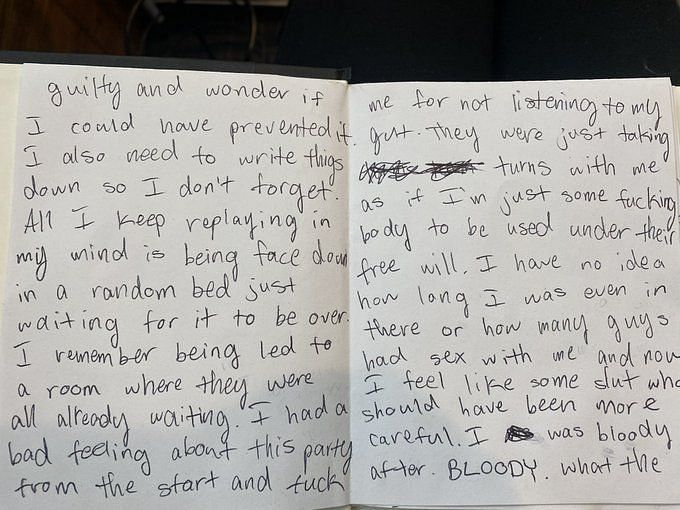 guilty and wonder if
I could have prevented it.
I also need to write thigs
down so I don't forget.
All I keep replaying in
my mind is being face down
in a random bed just
waiting for it to be over.
I remember being led to
a room where they were
all already waiting. I had a
bad feeling about this party
from the start and fuck
me for not listening to my
gut. They were just taking
turns with me
as if I'm just some fucking
body to be used under their
free will. I have no idea
how long I was even in
there or how many guys
had sex with me and now
I feel like some slut who
should have been more
careful. I was bloody
after. BLOODY. what the